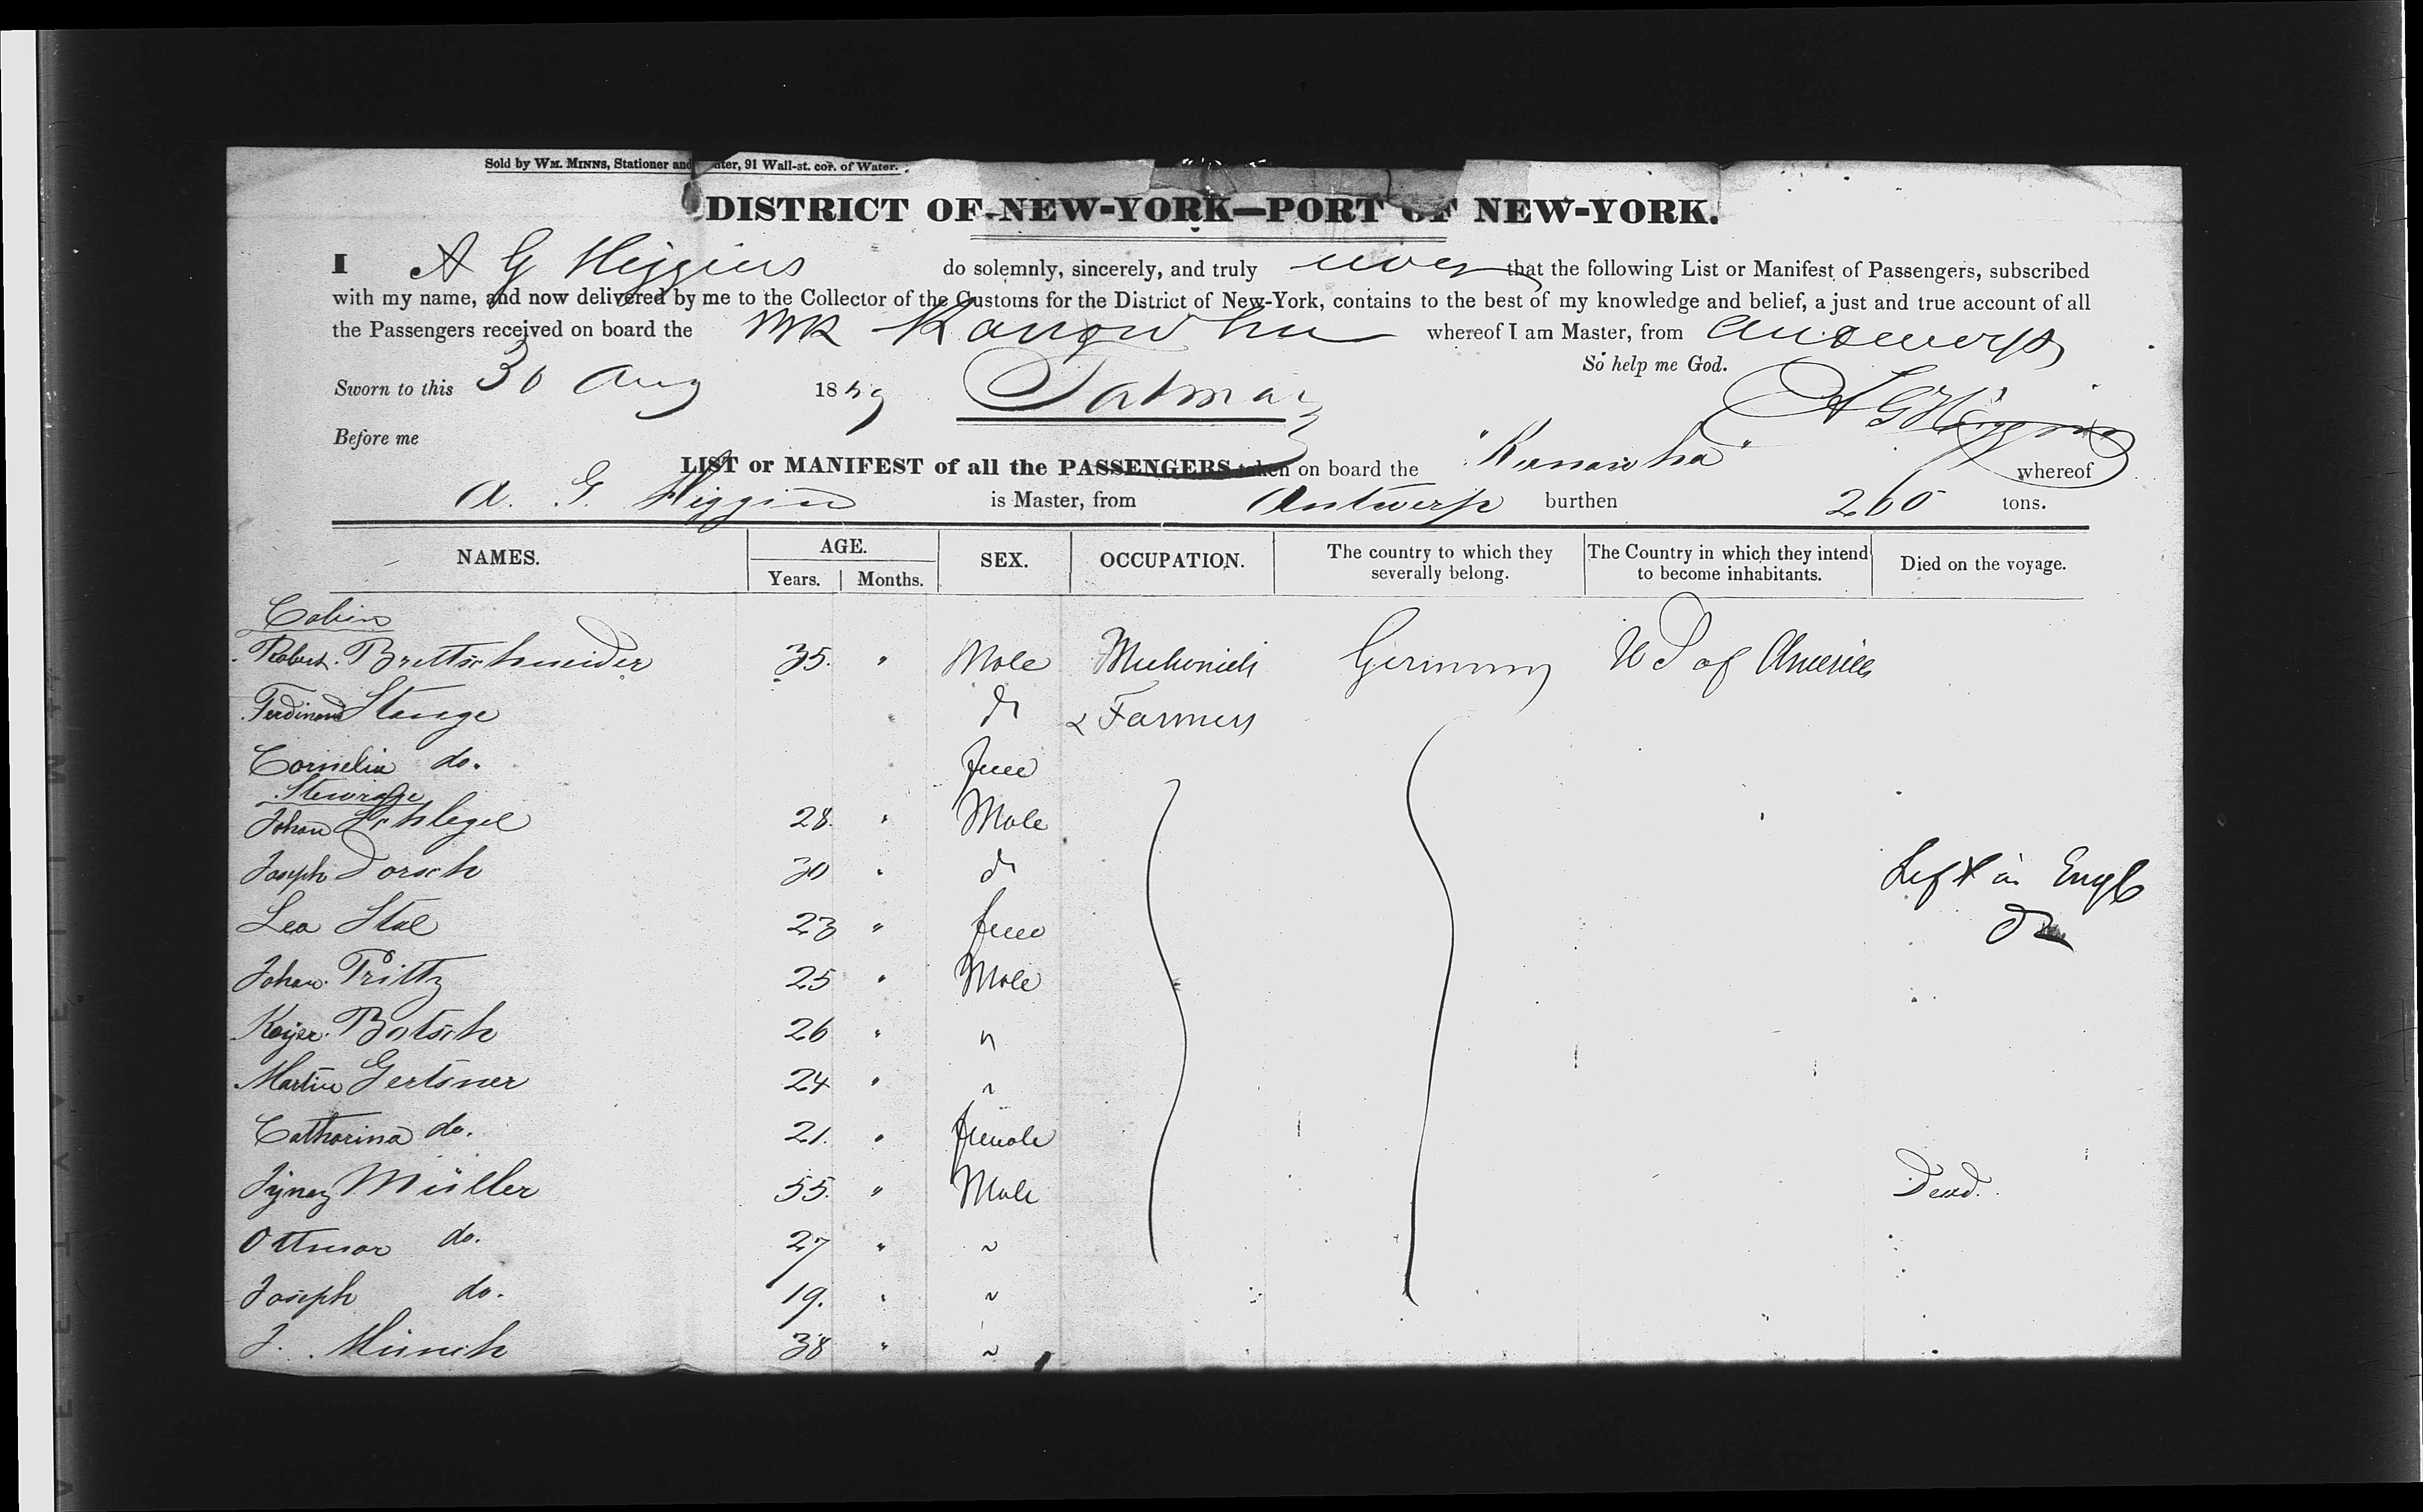 Sold by WM. MINNS, Stationer and ter, 91 Wall-st. cor. of Water.
DISTRICT OF NEW-YORK—PORT OF NEW-YORK.
I A G Higgins do solemnly, sincerely, and truly swear that the following List or Manifest of Passengers, subscribed
with my name, and now delivered by me to the Collector of the Customs for the District of New-York, contains to the best of my knowledge and belief, a just and true account of all
the Passengers received on board the whereof I am Master, from Antwerp
So help me God.
Sworn to this 30 Aug 18 A G Higgins
Before me
LIST or MANIFEST of all the PASSENGERS taken on board the "Kanawha" whereof
A. G. Higgins is Master, from Antwerp burthen 260 tons.
NAMES. AGE. SEX. OCCUPATION. The country to which they severally belong. The Country in which they intend to become inhabitants. Died on the voyage.
Years. Months.
Cabin
Robert Brettschneider 35. " Male Mechanick Germany US of America
Ferdinand Stange do & Farmers
Cornelia do. fem
Steerage
Johan Schlegel 28. " Male
Joseph Dorsch 30 " do Left in Engl
Lea Stal 23 " fem do
Johan Trittz 25 " Male
Botsch 26 " "
Martin Gertsner 24 " "
Catharina do. 21. " female
Müller 55. " Male Dead.
Ottmar do. 27 " "
Joseph do. 19. " "
J. Münch 38 " "